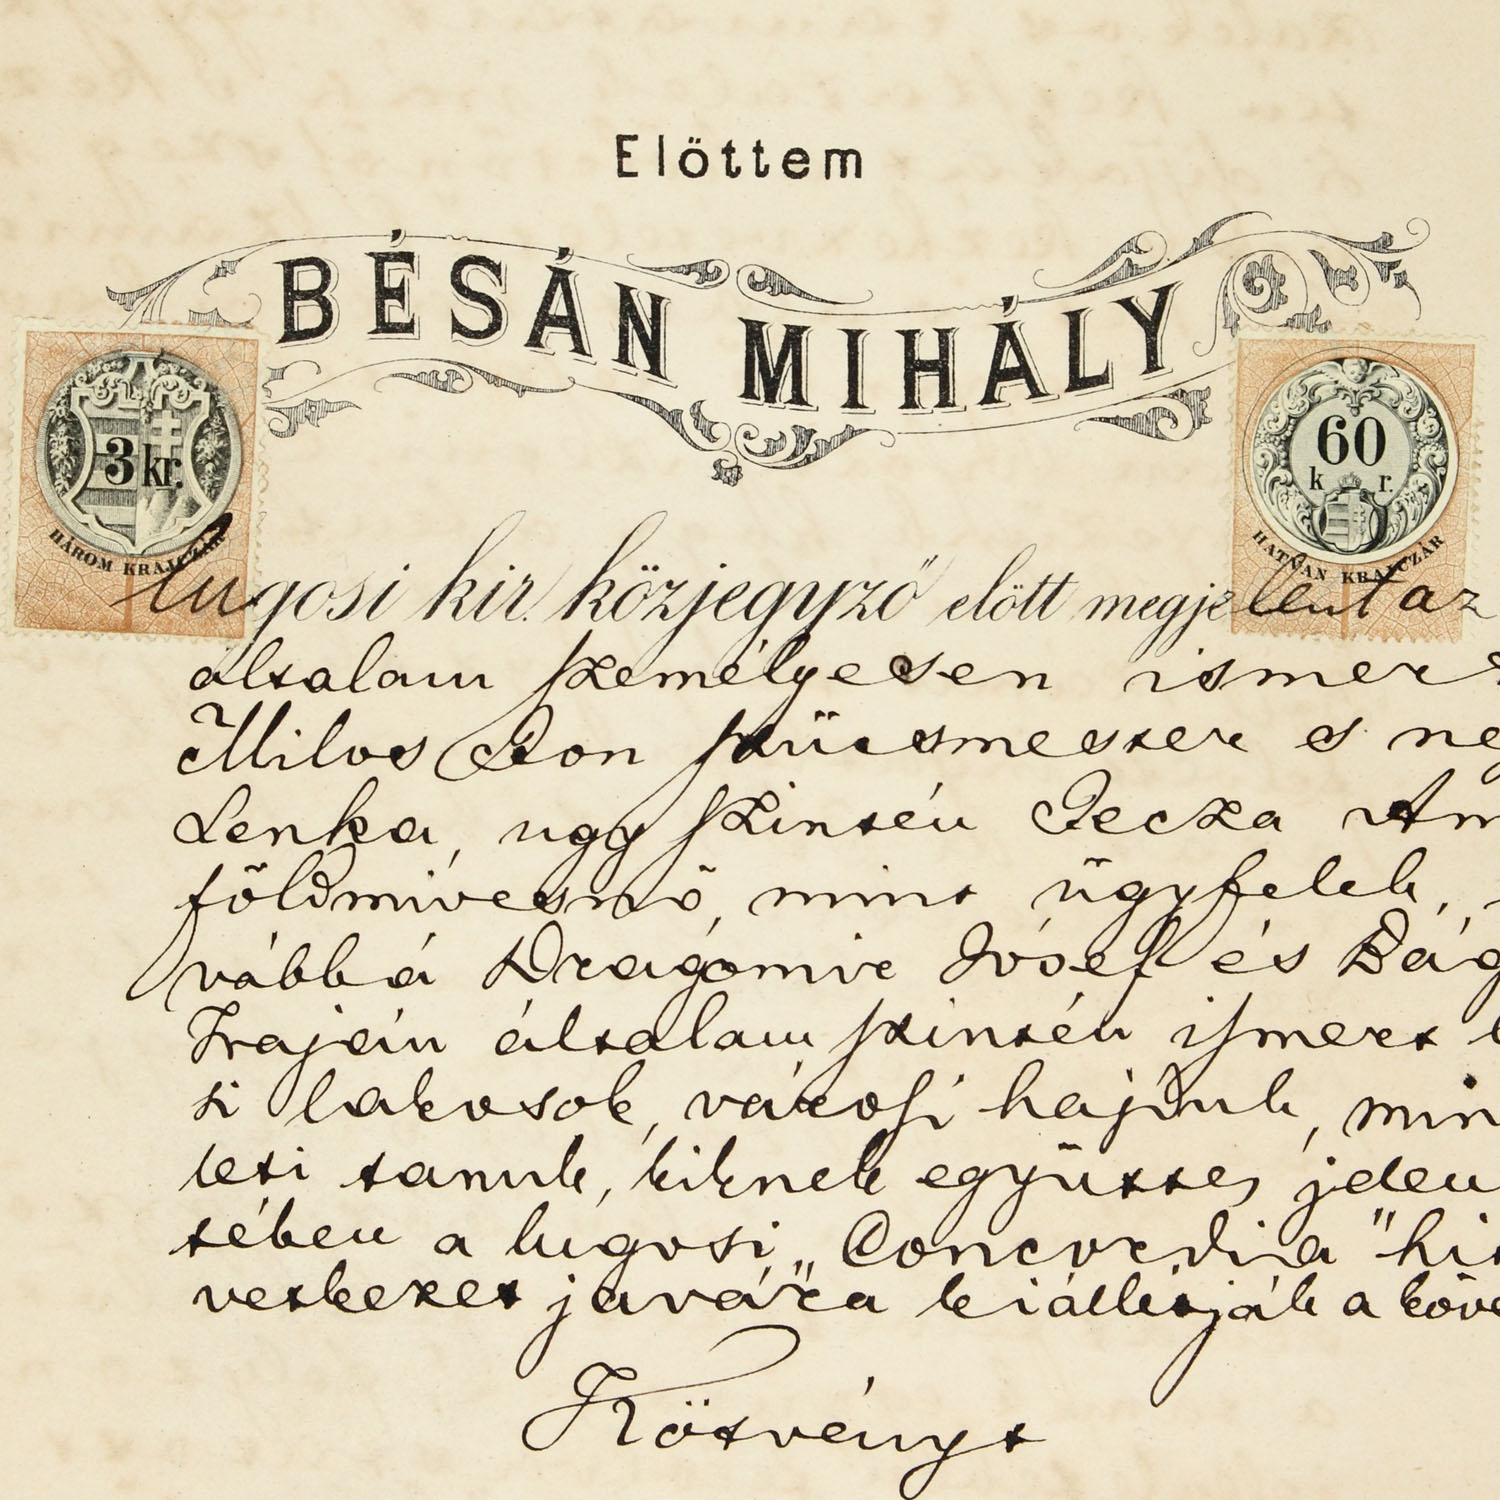 Elöttem
BÉSÁN MIHÁLY
3 kr.
HÁROM KRAJCZÁR
60
k r.
HATVAN KRAJCZÁR
lugosi kir. közjegyző elött megjelent az
általam személyesen ismer
Milos Ion szücsmester s ne
Lenka, ugy szintén Pecza
földmivesnő, mint ügyfelek,
vábbá Dragomir József és
Traján általam szintén ismert
si lakosok, városi hajduk, min
leti tanuk, kiknek együttes jelen
tében a lugosi „Concordia" hi
vetkezet javára kiállitják a köve
Kötvényt